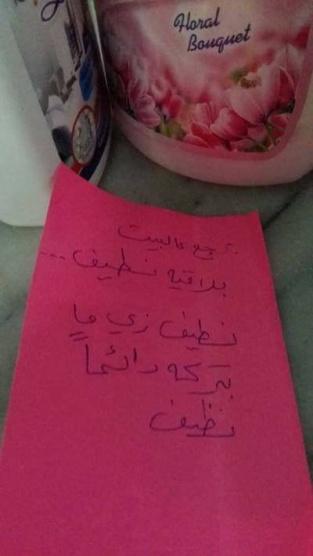 Floral
Bouquet
برجع عالبيت
بلاقيه نظيف...
نظيف زي ما
بتركه دائماً
نظيف